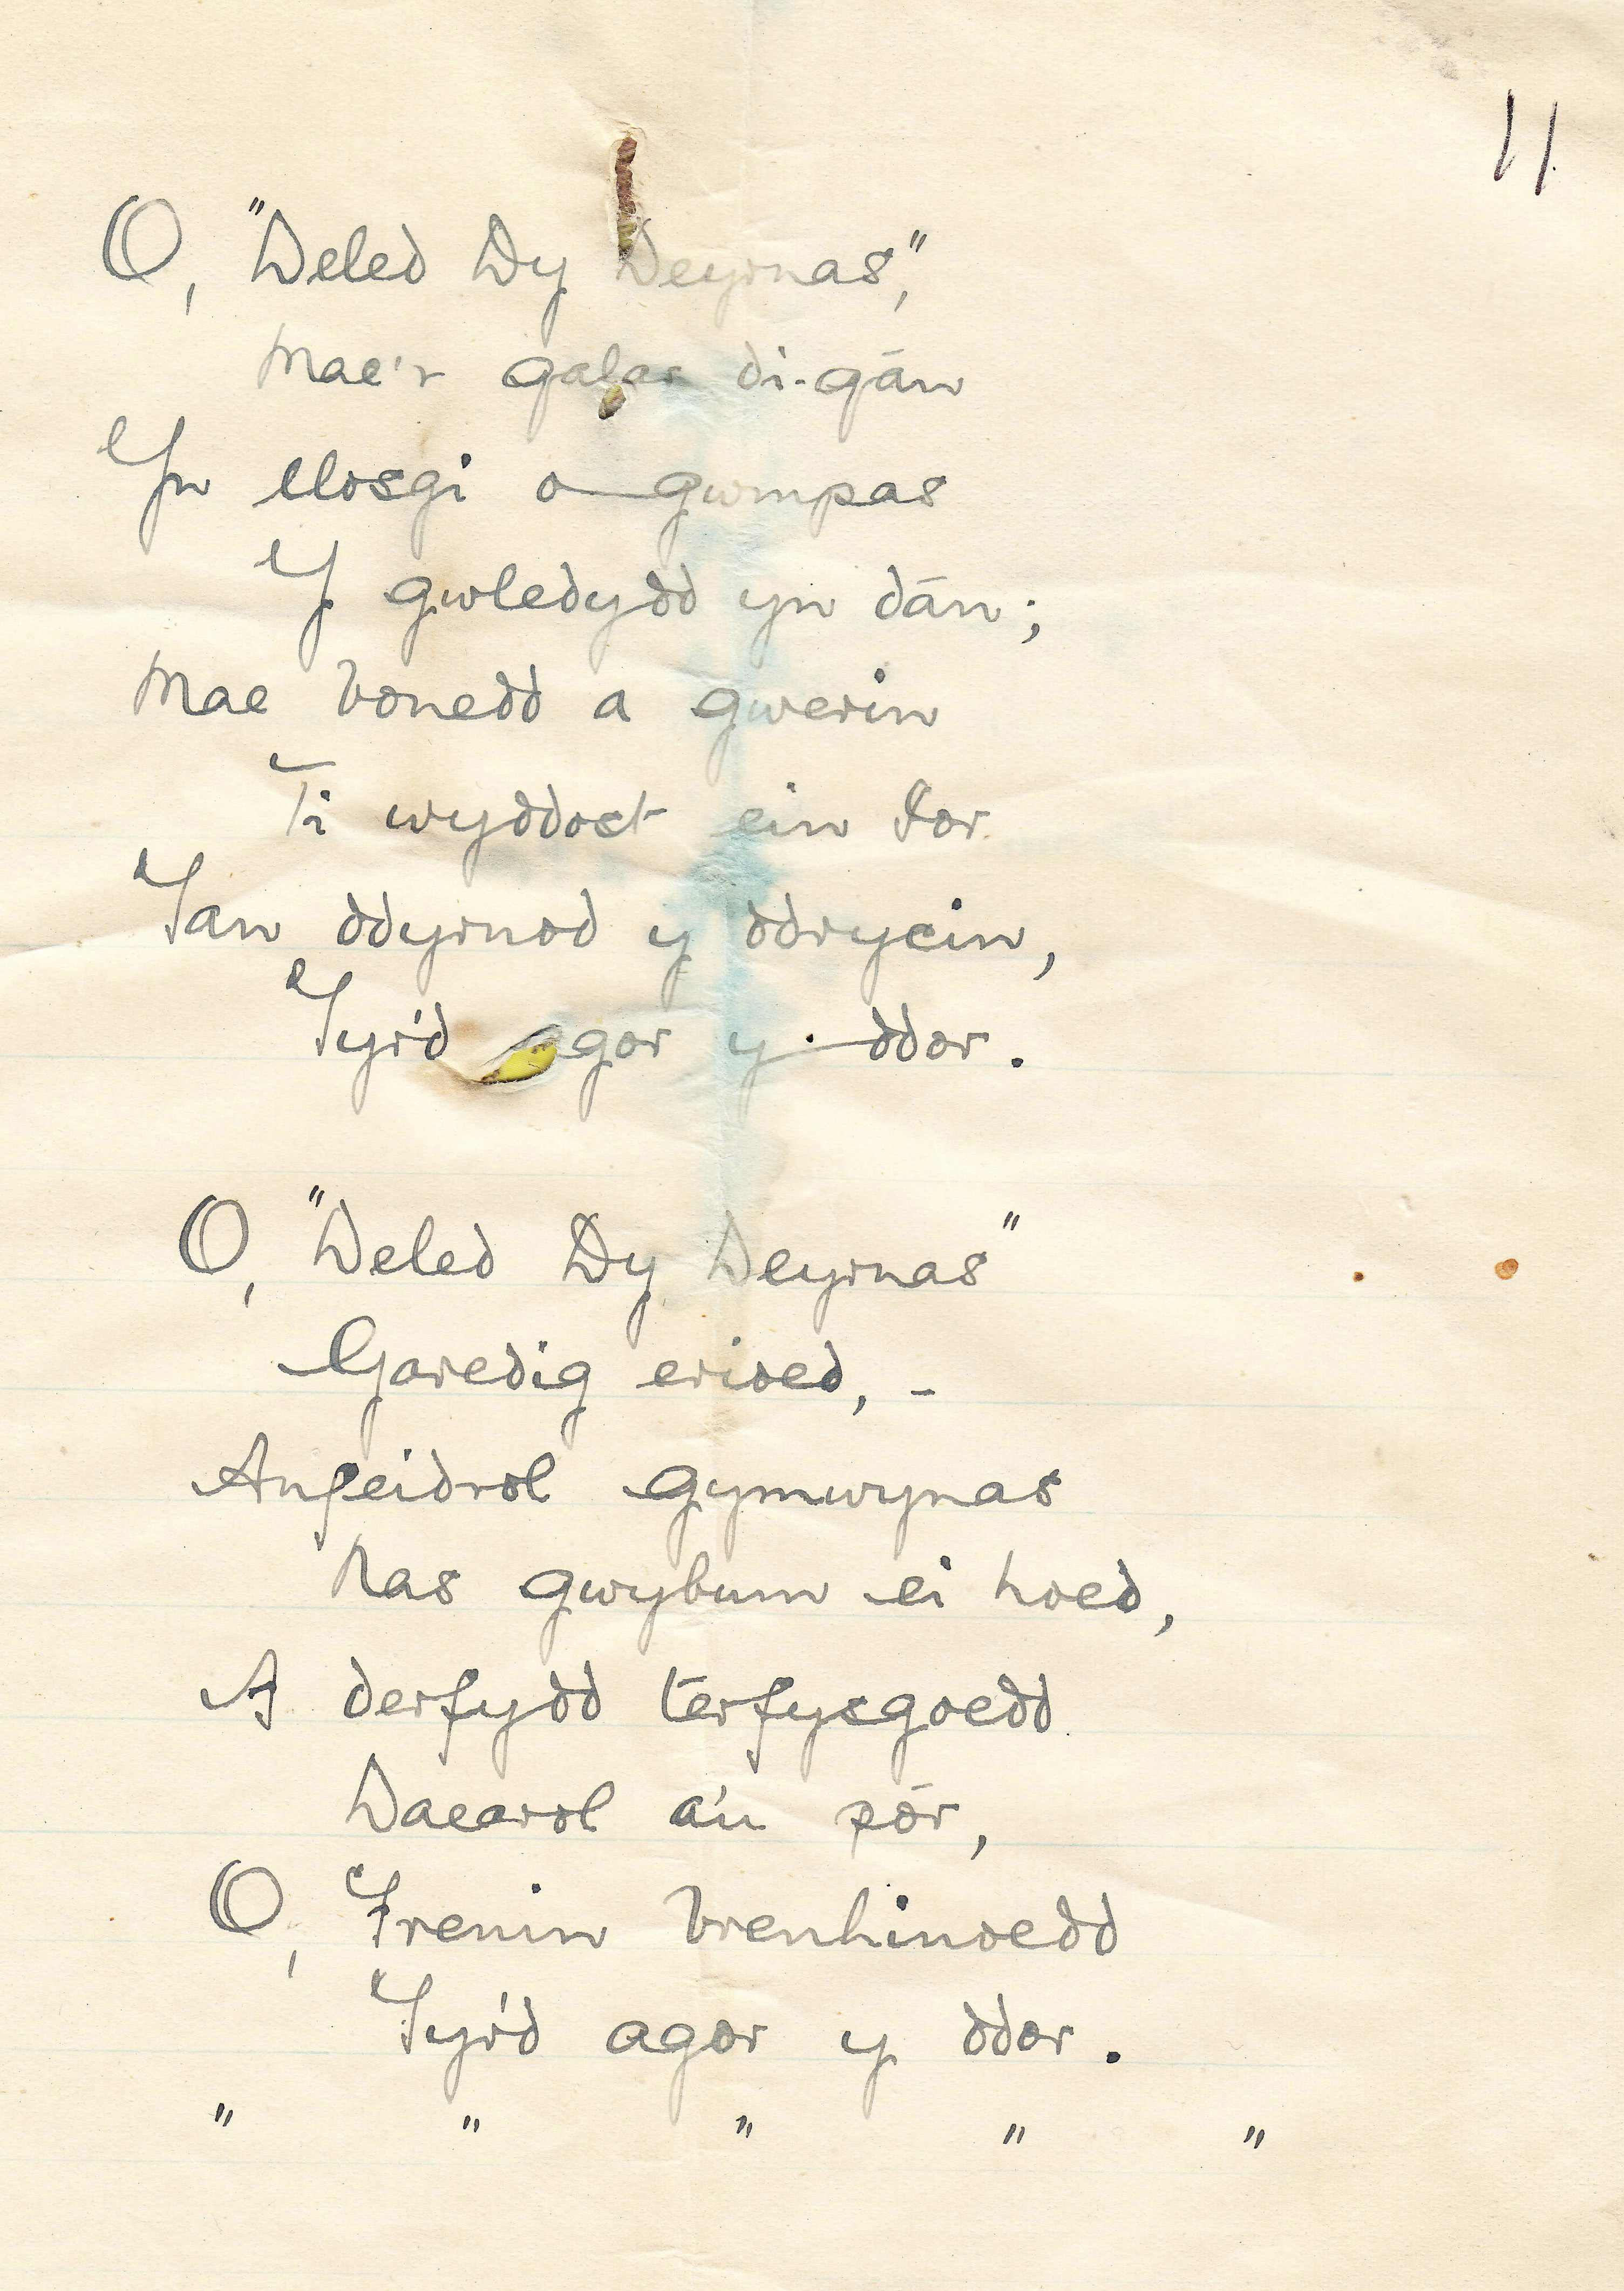 11
O, "Deled Dy Deyrnas,"
Mae'r galar di-gân
Yn llosgi o gwmpas
Y gwledydd yn dân;
Mae bonedd a gwerin
Ti wyddost ein Ior
Tan ddyrnod y ddrycin,
Tyr'd agor y ddor.
O, "Deled Dy Deyrnas"
Garedig erioed, -
Anfeidrol gymwynas
Nas gwybum ei hoed,
A derfydd terfysgoedd
Daearol a'u pôr,
O, Frenin brenhinoedd
Tyr'd agor y ddor.
" " " " "